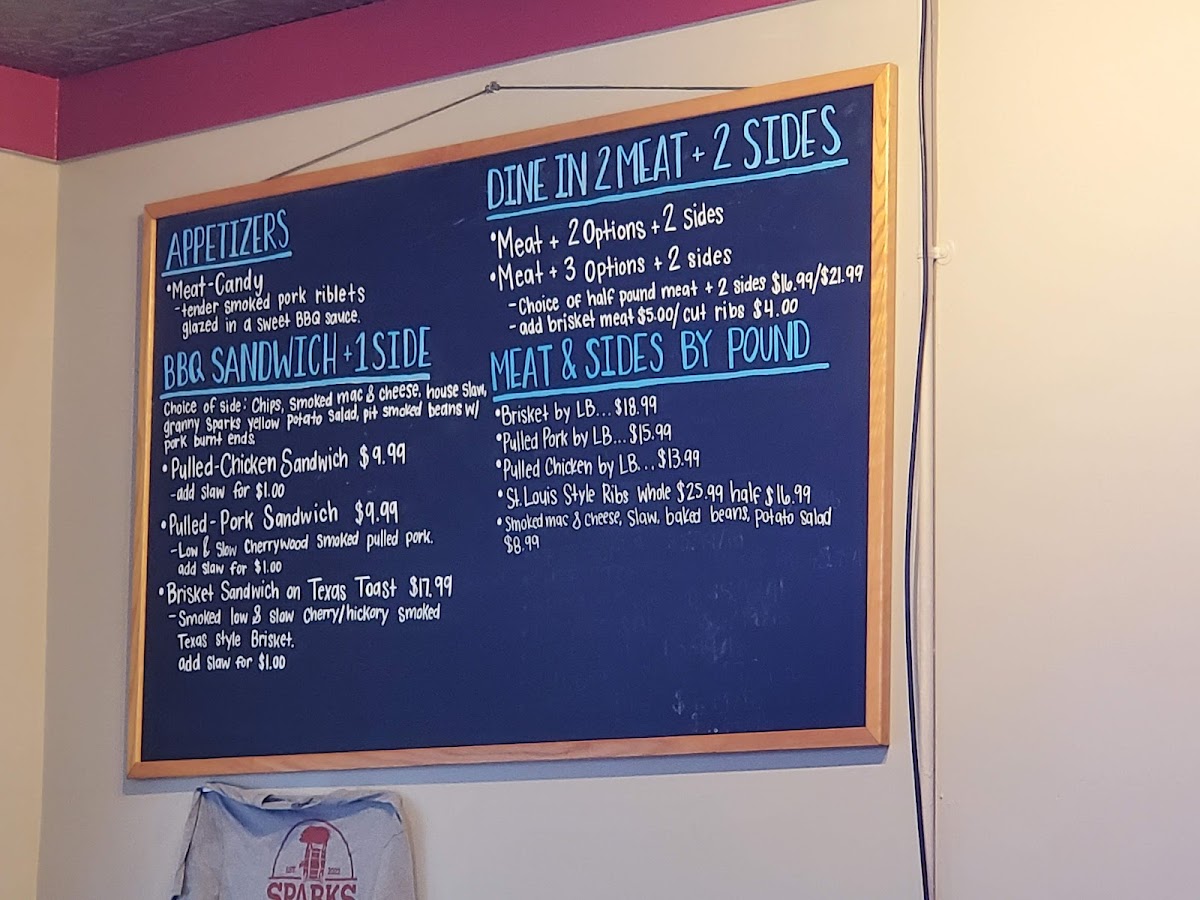 APPETIZERS
•Meat-Candy
-tender smoked pork riblets
glazed in a sweet BBQ sauce.
BBQ SANDWICH + 1 SIDE
Choice of side: Chips, smoked mac & cheese, house slaw,
granny sparks yellow potato salad, pit smoked beans w/
pork burnt ends.
•Pulled-Chicken Sandwich $9.99
-add slaw for $1.00
•Pulled-Pork Sandwich $9.99
-Low & Slow Cherrywood smoked pulled pork.
add slaw for $1.00
•Brisket Sandwich on Texas Toast $17.99
-Smoked low & slow Cherry/hickory smoked
Texas style Brisket.
add slaw for $1.00
DINE IN 2 MEAT + 2 SIDES
•Meat + 2 Options + 2 Sides
•Meat + 3 Options + 2 sides
-Choice of half pound meat + 2 sides $16.99/$21.99
-add brisket meat $5.00/cut ribs $4.00
MEAT & SIDES BY POUND
•Brisket by LB... $18.99
•Pulled Pork by LB... $15.99
•Pulled Chicken by LB... $13.99
•St. Louis Style Ribs whole $25.99 half $16.99
•Smoked mac & cheese, slaw, baked beans, potato salad
$8.99
EST. 2022
SPARKS